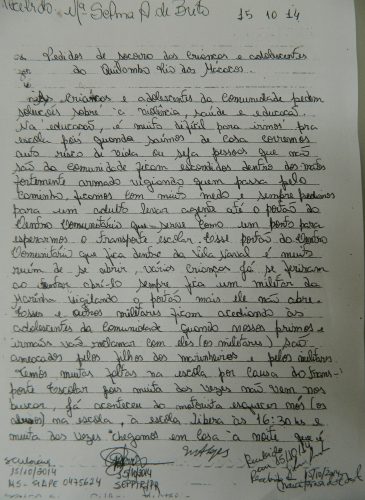 Mª Selma D. de Brito 15 10 14
Pedidos de socorro das crianças e adolescentes
do Quilombo Rio dos Macacos.
nós crianças e adolescentes da comunidade pedem
soluções sobre a violência, saúde e educação.
Na educação, é muito difícil para irmos pra
escola pois quando saimos de casa corremos
auto risco de vida ou seja pessoas que não
são da comunidade ficam escondidos dentro dos matos
fortemente armado vigiando quem passa pelo
caminho, ficamos com muito medo e sempre pedimos
para um adulto levar agente até o portão do
Centro Comunitário que serve como um ponto para
esperarmos o transporte escolar. Esse portão do Centro
Comunitário que fica dentro da Vila Naval é muito
ruim de se abrir, várias crianças já se feriram
ao tentar abri-lo sempre fica um militar da
Marinha vigiando o portão mais ele não abre.
Esses e outros militares ficam acediando as
adolescentes da comunidade quando nossos primos e
irmãos vão reclamar com eles (os militares) são
ameaçados pelos filhos dos marinheiros e pelos militares
temos muitas faltas na escola por causa do trans-
porte Escolar pois muita das vezes não vem nos
buscar, já aconteceu do motorista esquecer nós (os
alunos) na escola, a escola libera às 16:30 hs e
muita das vezes chegamos em casa a noite que é
15/10/2014
MS - SIAPE 0435624
15/10/2014
SEPPIR/PR
Recebido
em 15/10/14
Recebido
15/10/14